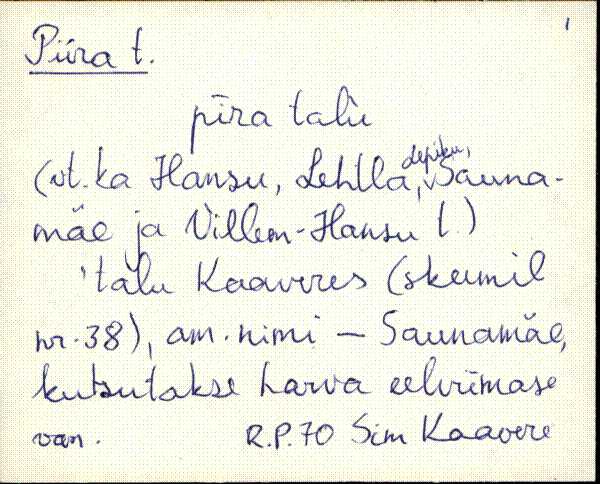 1
Piira t.
pīra talu
(vt. ka Hansu, Lehtla, Lepiku, Sauna-
mäe ja Villem-Hansu t.)
talu Kaaveres (skeemil
nr. 38), am. nimi – Saunamäe,
kutsutakse harva eelviimase
van. R.P.70 Sim Kaavere